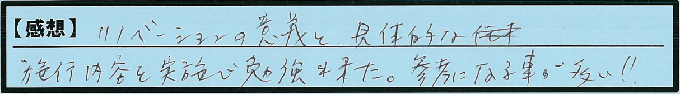 【感想】リノベーションの意義と、具体的な
施行内容を実施で勉強出来た。参考になる事が多い!!